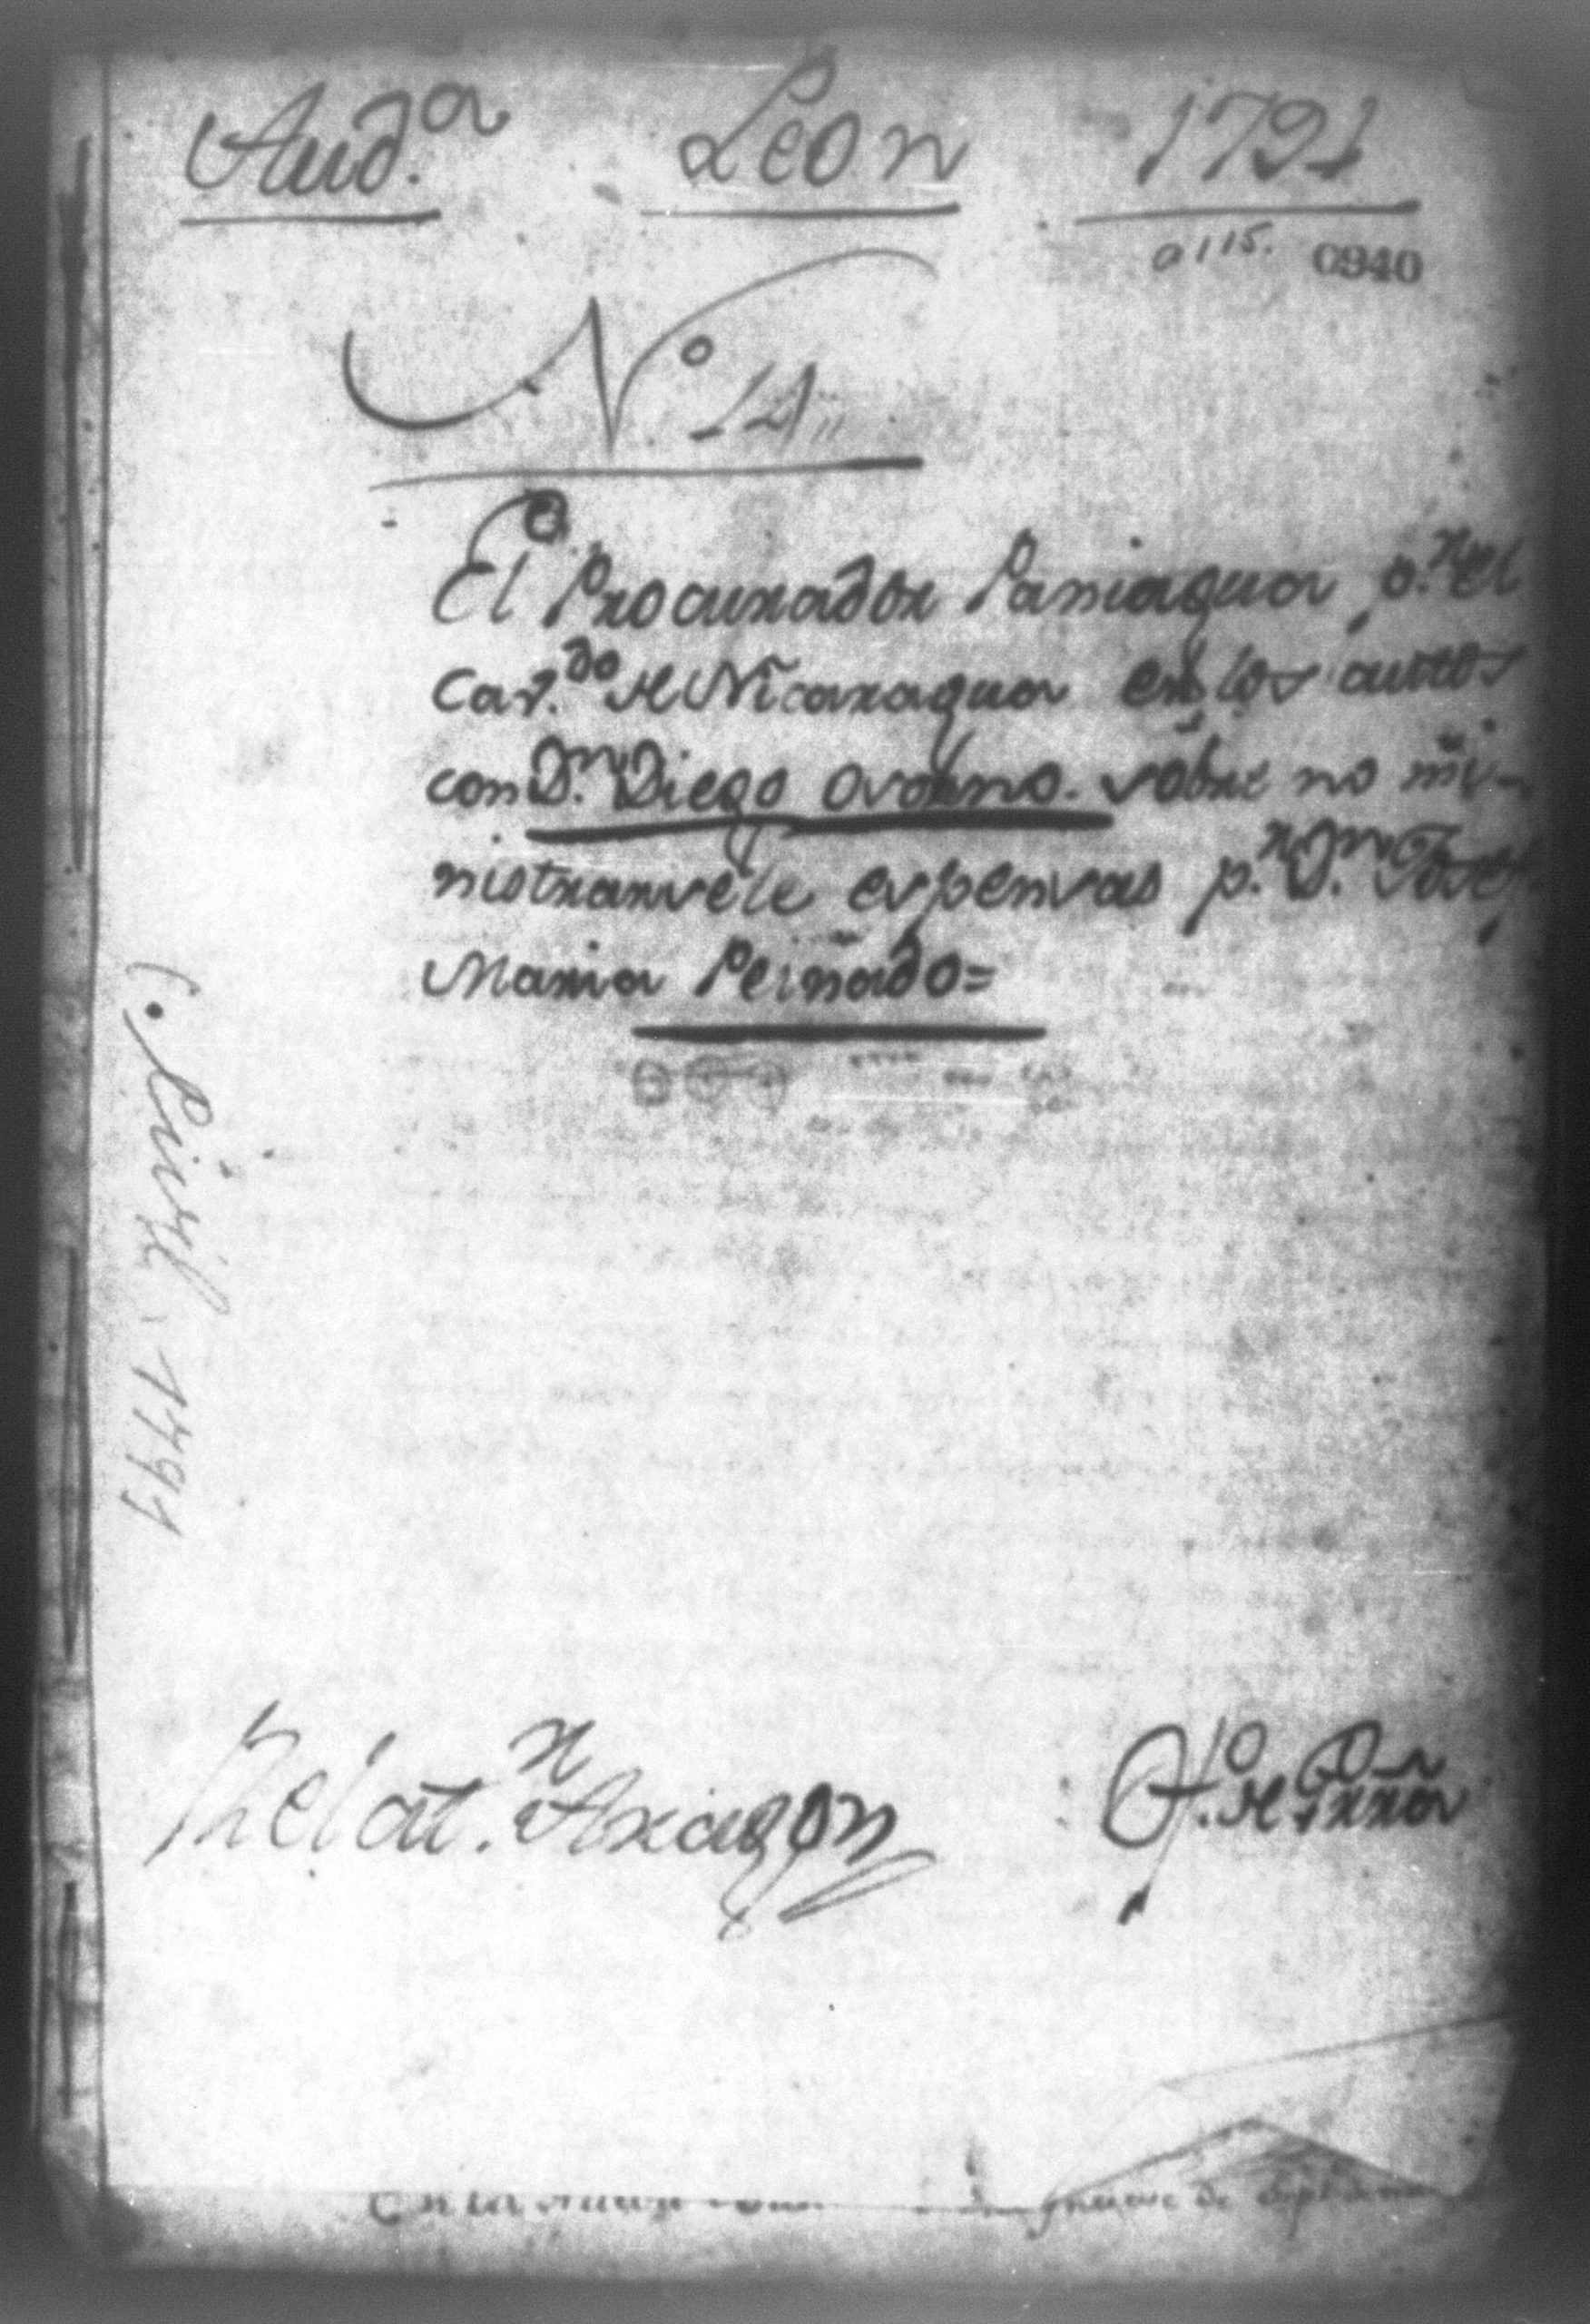 Aud.ª León 1791
a 115. 0940
Nº 14
El Procurador Paniagua p.r el
Cav.do de Nicaragua en los autos
con D.n Diego Osorno sobre no mi-
nistrarsele expensas p.r D.n Josef
Maria Peinado=
(. Civil, 1791
Relat.r Aragon
Of.o de
En la Nueva nueve de Septiem